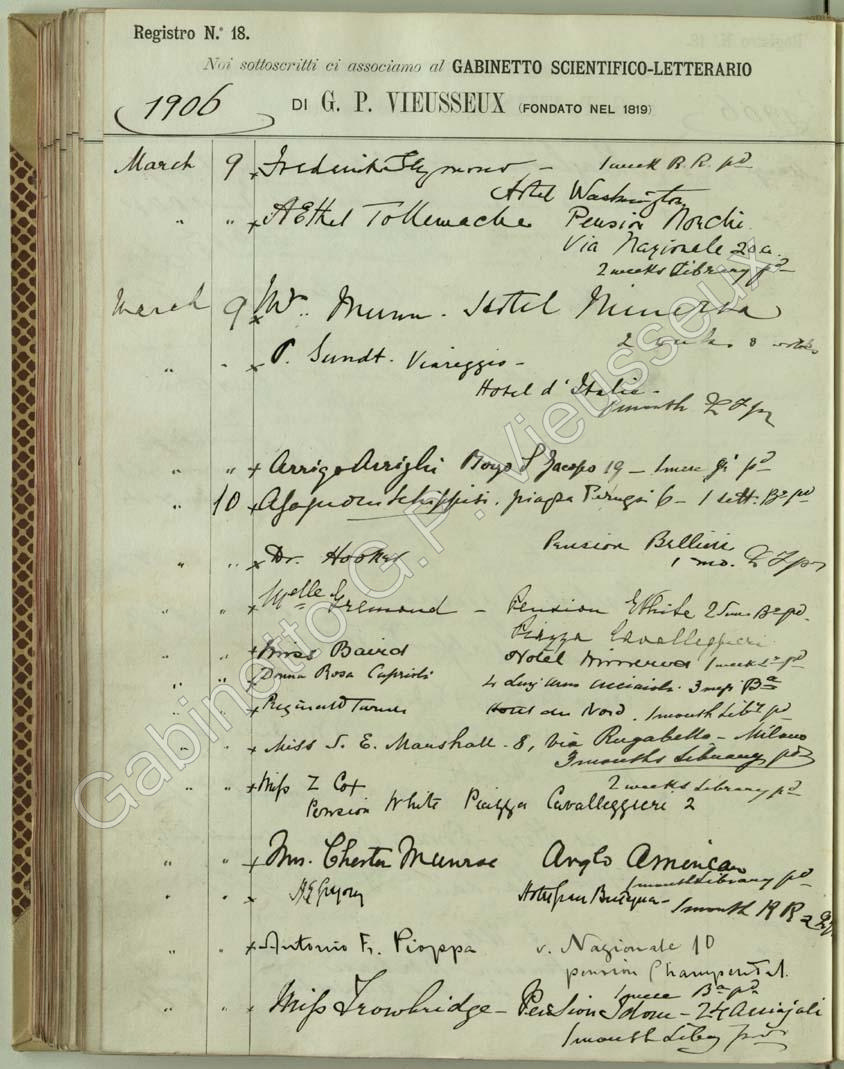 Registro N.º 18.
Noi sottoscritti ci associamo al GABINETTO SCIENTIFICO-LETTERARIO
1906 DI G. P. VIEUSSEUX (FONDATO NEL 1819)
March 9 x Frederick Seymour – 1 week R. R. pd
Hotel Washington
" " x A Ethel Tollemache Pension Nocchi
Via Nazionale 20a.
2 weeks Library pd
March 9 x Mr. Munn. Hotel Minerva
2 weeks 8
" " x P. Sundt. Viareggio –
Hotel d'Italie –
1 month
" " x Arrigo Arrighi Borgo S Jacopo 19 – 1 mese pd
" 10 x piazza Peruzzi 6 – 1 sett: Ba pd
Pension Bellini
" " x Dr. Hooker 1 mo.
" " x Melle Gremond – Pension White 2 Ba pd.
Piazza Cavalleggieri
" " x Miss Baird Hotel Minerva 1 week pd
" " x Donna Rosa Caprioli 4 Lung' Arno Acciaioli. 3 mesi Ba
" " x Reginald Turner Hotel du Nord. 1 month Liby pd
" " x Miss S. E. Marshall. 8, Via Rugabella – Milano
3 months Library pd
" " x Miss Z Cox 2 weeks Library pd
Pension White Piazza Cavalleggieri 2
" " x Mrs. Chester Munroe Anglo American
1 month Library pd
" " x H E Gregory 1 month R R
" " x Antonio Fr. Pioppa v. Nazionale 10
pension
1 mese Ba pd
" " x Miss Trowbridge – Pension – 24 Acciajoli
1 month Liby pd
Gabinetto G.P. Vieusseux